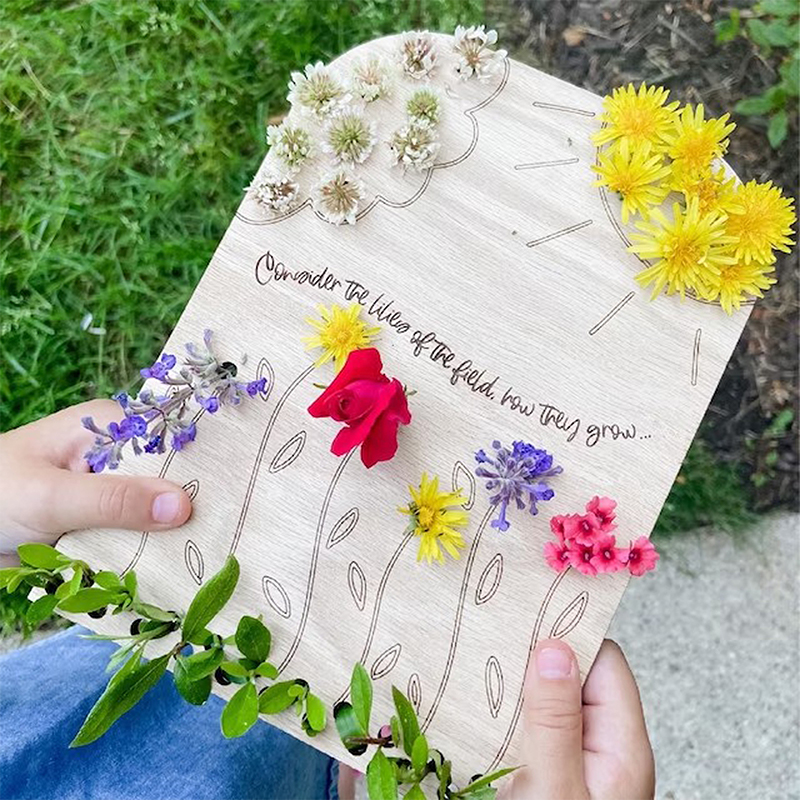 Consider the lilies of the field, how they grow...